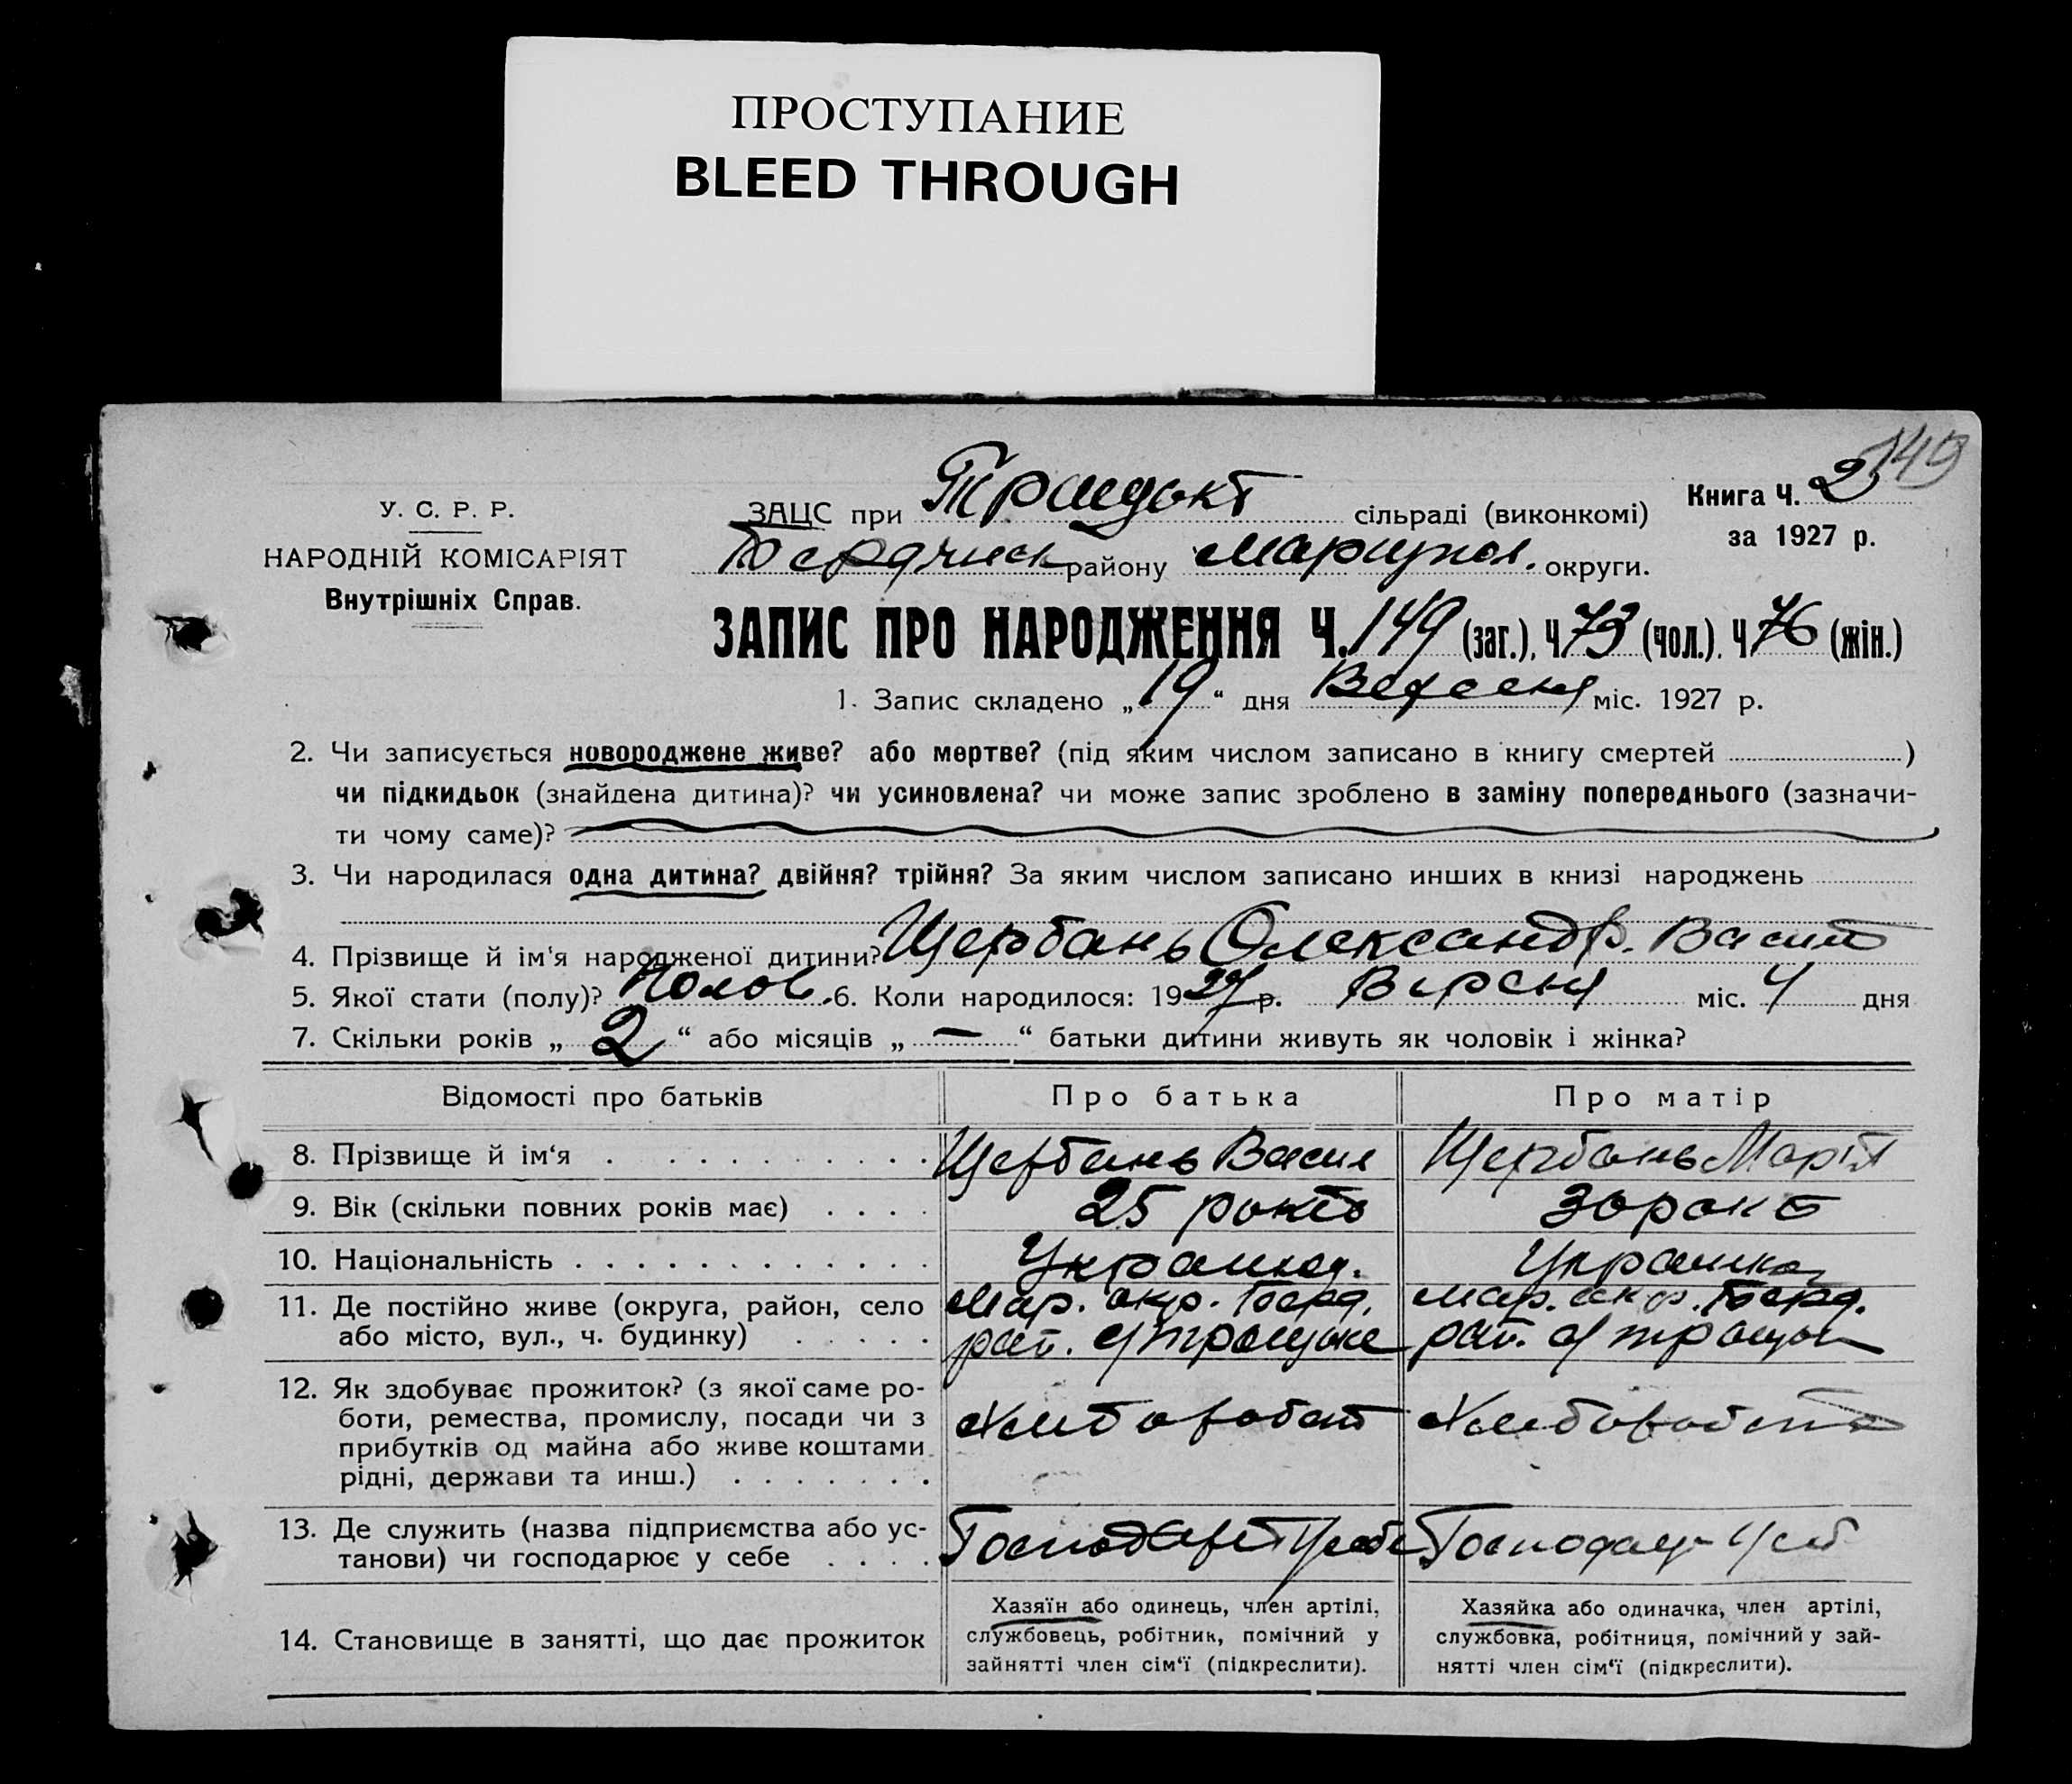 ПРОСТУПАНИЕ
BLEED THROUGH
149
У. С. Р. Р.
НАРОДНІЙ КОМІСАРІЯТ
Внутрішніх Справ.
Книга Ч. 2
за 1927 р.
ЗАЦС при сільраді (виконкомі)
району Маріупол. округи.
ЗАПИС ПРО НАРОДЖЕННЯ Ч. 149 (заг.), Ч 73 (чол.), Ч 76 (жін.)
1. Запис складено „ 19 “ дня Вересня міс. 1927 р.
2. Чи записується новороджене живе? або мертве? (під яким числом записано в книгу смертей )
чи підкидьок (знайдена дитина)? чи усиновлена? чи може запис зроблено в заміну попереднього (зазначи-
ти чому саме)?
3. Чи народилася одна дитина? двійня? трійня? За яким числом записано инших в книзі народжень
4. Прізвище й ім‘я народженої дитини? Щербань Олександр. Васил
5. Якої стати (полу)? Чолов. 6. Коли народилося: 1927 р. Версня міс. 4 дня
7. Скільки років „ 2 “ або місяців „ — “ батьки дитини живуть як чоловік і жінка?
Відомості про батьків Про батька Про матір
8. Прізвище й ім‘я Щербань Васил Щербань Марія
9. Вік (скільки повних років має) 25 років 30 років
10. Національність Українец. Українка
11. Де постійно живе (округа, район, село Мар. окр. Берд. Мар. окр. Берд.
або місто, вул., ч. будинку) рай. с/ рай. с/
12. Як здобуває прожиток? (з якої саме ро-
боти, ремества, промислу, посади чи з Хлібороб
прибутків од майна або живе коштами
рідні, держави та инш.)
13. Де служить (назва підприємства або ус-
танови) чи господарює у себе
Хазяїн або одинець, член артілі, Хазяйка або одиначка, член артілі,
14. Становище в занятті, що дає прожиток службовець, робітник, помічний у службовка, робітниця, помічний у зай-
зайнятті член сім‘ї (підкреслити). нятті член сім‘ї (підкреслити).